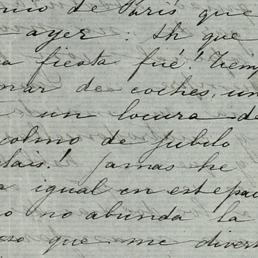 mio de París que
ayer: Sh que
a fiesta fué! Tiemp
nar de coches, un
un locura de
colmo de jubilo
lais! Jamas he
a igual en este pai
o no abunda la
eso que me divert